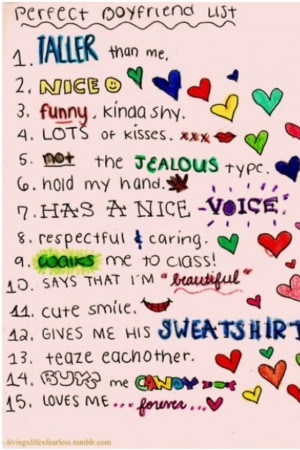 Perfect Boyfriend List
1. TALLER than me.
2. NICE
3. funny, kinda shy.
4. LOTS of kisses. xxx
5. not the JEALOUS type.
6. hold my hand.
7. HAS A NICE -VOICE-
8. respectful & caring.
9. walks me to class!
10. SAYS THAT I'M "beautiful"
11. cute smile.
12. GIVES ME HIS SWEATSHIRT
13. teaze eachother.
14. BUYS me CANDY
15. LOVES ME... forever...
-livingxlifexfearless.tumblr.com